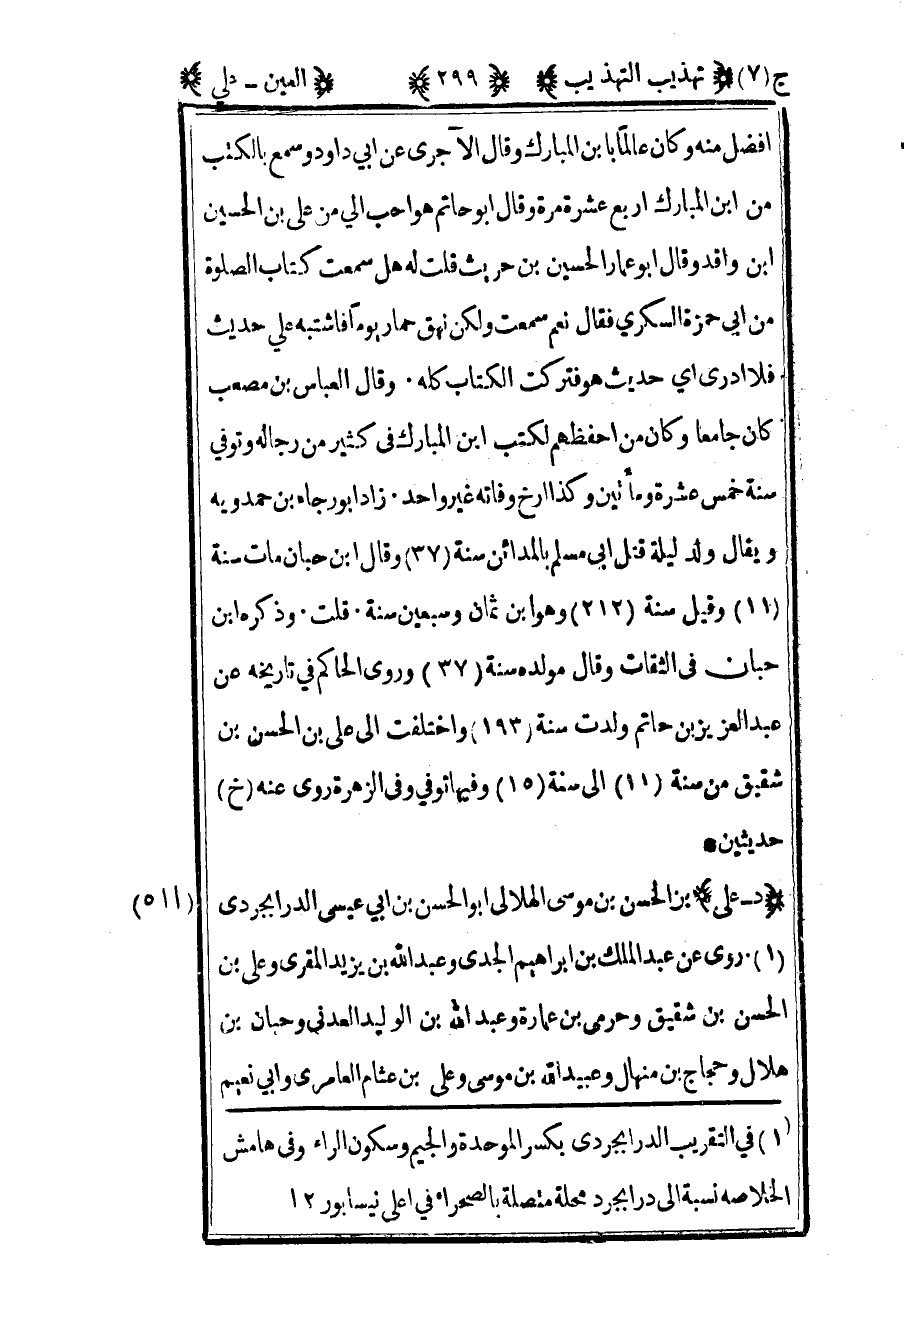 ج(٧) ﴿ تهذيب التهذيب ﴾ ﴿ ٢٩٩ ﴾ ﴿ العين - علي ﴾
افضل منه وكان عالمًا بابن المبارك وقال الآجرى عن ابي داود وسمع بالكتب
من ابن المبارك اربع عشرة مرة وقال ابو حاتم هو احب الي من على بن الحسين
ابن واقد وقال ابو عمار الحسين بن حريث قلت له هل سمعت كتاب الصلوة
من ابي حمزة السكري فقال نعم سمعت ولكن نهق حمار يوماً فاشتبه علي حديث
فلا ادرى اي حديث هو فتركت الكتاب كله · وقال العباس بن مصعب
كان جامعا وكان من احفظهم لكتب ابن المبارك فى كثير من رجاله وتوفي
سنة خمس عشرة ومأتين وكذا ارخ وفاته غير واحد · زاد ابو رجاء بن حمدويه
ويقال ولد ليلة قتل ابي مسلم بالمدائن سنة (٣٧) وقال ابن حبان مات سنة
(١١) وقيل سنة (٢١٢) وهو ابن ثمان وسبعين سنة · قلت · وذكره ابن
حبان فى الثقات وقال مولده سنة (٣٧) وروى الحاكم في تاريخه عن
عبد العزيز بن حاتم ولدت سنة (١٩٣) واختلفت الى على بن الحسن بن
شقيق من سنة (١١) الى سنة (١٥) وفيها توفي وفى الزهرة روى عنه (خ)
حديثين ●
﴿ د - على ﴾ بن الحسن بن موسى الهلالى ابو الحسن بن ابي عيسى الدرابجردى (٥١١)
(١) · روى عن عبد الملك بن ابراهيم الجدى وعبد الله بن يزيد المقرى وعلى بن
الحسن بن شقيق وحرمى بن عمارة وعبد الله بن الوليد العدني وحبان بن
هلال وحجاج بن منهال وعبيد الله بن موسى وعلى بن عثام العامرى وابي نعيم
(١) في التقريب الدرابجردى بكسر الموحدة والجيم وسكون الراء وفى هامش
الخلاصه نسبة الى درابجرد محلة متصلة بالصحراء في اعلى نيسابور ١٢